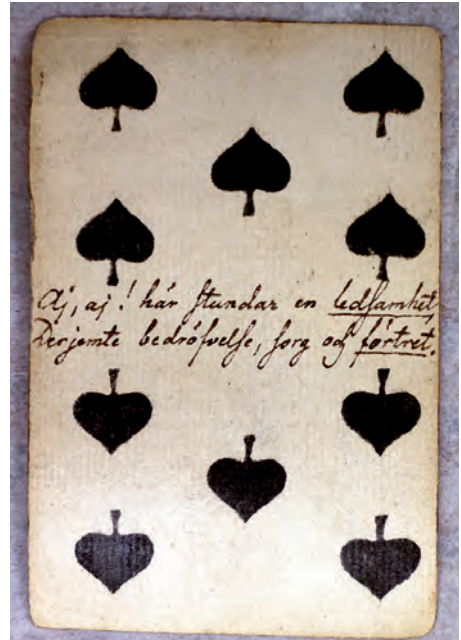 Aj, aj! här stundar en ledsamhet,
Derjemte bedröfvelse, sorg och förtret.